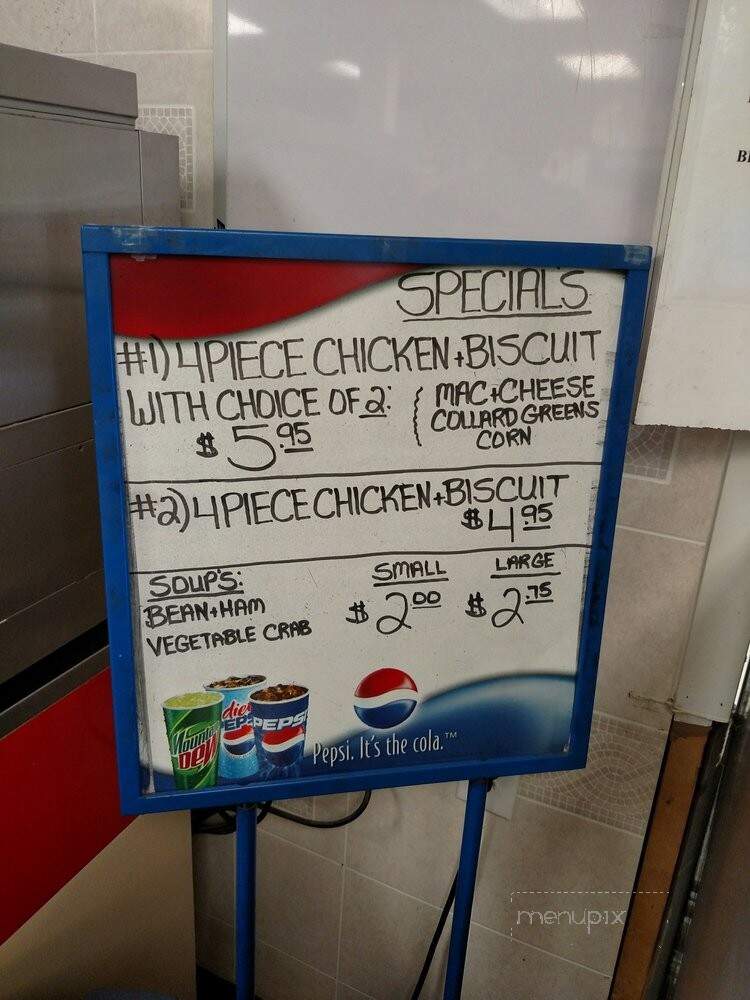 SPECIAL'S
#1) 4 PIECE CHICKEN + BISCUIT
WITH CHOICE OF 2: MAC + CHEESE
COLLARD GREENS
CORN
$5.95
#2) 4 PIECE CHICKEN + BISCUIT
$4.95
SOUP'S: SMALL LARGE
BEAN + HAM $2.00 $2.75
VEGETABLE CRAB
Mountain Dew
diet PEPSI
PEPSI
Pepsi. It's the cola.™
menupix